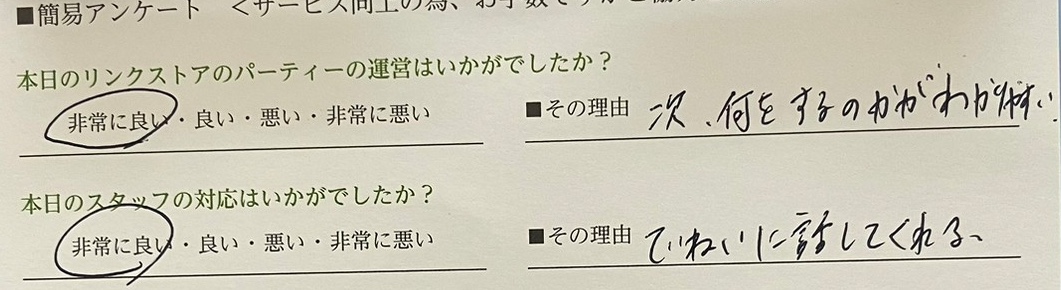 ■簡易アンケート ＜サービス向上の為、お手数ですがご協力
本日のリンクストアのパーティーの運営はいかがでしたか？
非常に良い・良い・悪い・非常に悪い ■その理由 次、何をするのかがわかりやすい
本日のスタッフの対応はいかがでしたか？
非常に良い・良い・悪い・非常に悪い ■その理由 ていねいに話してくれる、